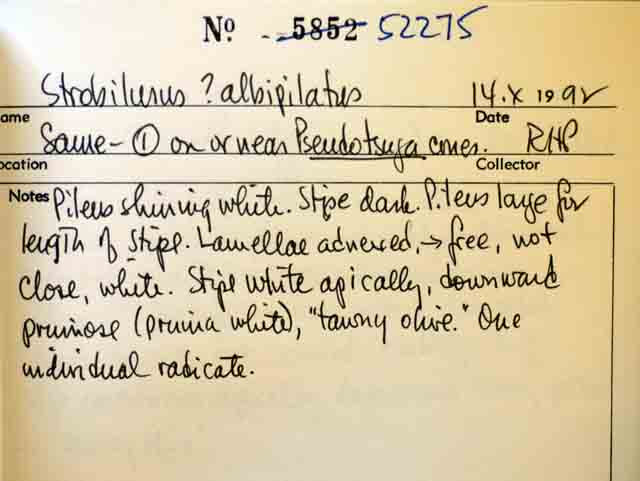 Nº 5852 52275
Strobilurus ? albipilatus 14.X 1992
ame Date
Same - ① on or near Pseudotsuga cones. RHP
ocation Collector
Notes Pileus shining white. Stipe dark. Pileus large for
length of stipe. Lamellae adnexed, → free, not
close, white. Stipe white apically, downward
pruinose (pruina white), "tawny olive." One
individual radicate.